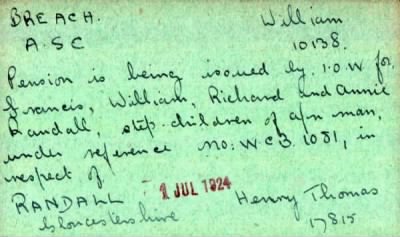 BREACH. William
A.S.C 10138.
Pension is being issued by I.O.W for
Francis, William, Richard and Annie
Randall, step-children of a/n man,
under reference no: WC3. 1081, in
respect of
1 JUL 1924
RANDALL Henry Thomas
Gloucestershire 17815